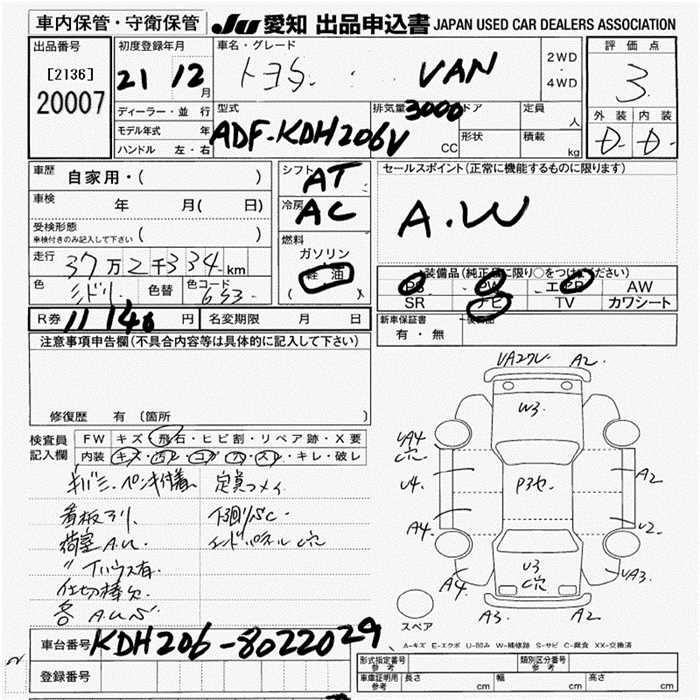 車内保管・守衛保管 JU 愛知 出品申込書 JAPAN USED CAR DEALERS ASSOCIATION
出品番号 初度登録年月 車名・グレード 2WD・4WD 評価点
[2136] 21 12月 トヨタ VAN 3
20007
ディーラー・並行 型式 排気量 3000 CC ドア 定員 人 外装 内装
モデル年式 年 ADF-KDH206V 形状 積載 kg D D
ハンドル 左・右
車歴 自家用・( ) シフト AT セールスポイント(正常に機能するものに限ります)
車検 年 月(日) 冷房 AC A.W
受検形態 ( )
車検付きのみ記入して下さい
燃料 ガソリン
走行 37万2千334km 軽油 装備品(純正品に限り○をつけて下さい)
色 ミドリ 色替 色コード 6S3 ( ) PS PW エアB AW
SR ナビ TV カワシート
R券 11140円 名変期限 月 日 新車保証書 有・無 後装品
注意事項申告欄(不具合内容等は具体的に記入して下さい)
修復歴 有 (箇所
検査員記入欄 FW キズ・飛石・ヒビ割・リペア跡・X要
内装 キズ・汚レ・コゲ・穴・スレ・キレ・破レ
キバミ・ペンキ付着 定員ツメイ
看板アリ 下回りSC
荷室A.U. エンドパネル穴
〃 Tハウス有
仕切棒欠
各A.U.S
VA27レ A2
W3
UA4 穴
U4 P3セ A2
A4 U2
U3 穴
A4 VA3
A3 A2
スペア
A−キズ E−エクボ U−凹み W−補修跡 S−サビ C−腐食 XX−交換済
車台番号 KDH206-8022029
登録番号
型式指定番号 参考 類別区分番号 参考
車庫証明用 参考 長さ cm 幅 cm 高さ cm